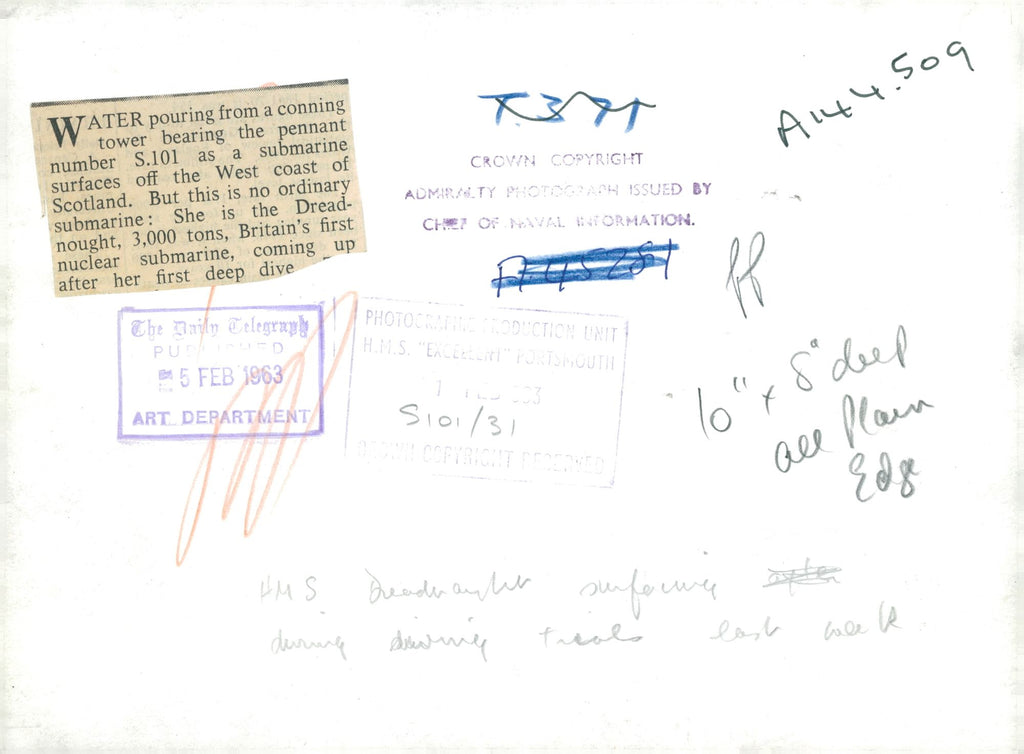 WATER pouring from a conning
tower bearing the pennant
number S.101 as a submarine
surfaces off the West coast of
Scotland. But this is no ordinary
submarine: She is the Dread-
nought, 3,000 tons, Britain's first
nuclear submarine, coming up
after her first deep dive
A144.509
CROWN COPYRIGHT
ADMIRALTY PHOTOGRAPH ISSUED BY
CHIEF OF NAVAL INFORMATION.
The Daily Telegraph
PUBLISHED
5 FEB 1963
ART DEPARTMENT
PHOTOGRAPHIC PRODUCTION UNIT
H.M.S. "EXCELLENT" PORTSMOUTH
S101/31
CROWN COPYRIGHT RESERVED
10" x 8" deep
all Plain
Edge
HMS Dreadnaught surfacing
during diving trials last week